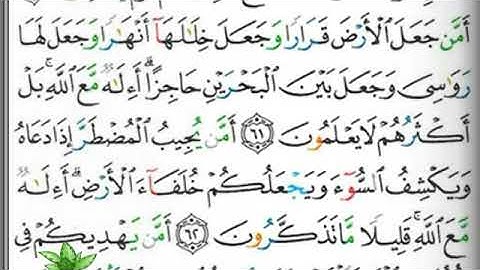 أَمَّن جَعَلَ ٱلْأَرْضَ قَرَارًا وَجَعَلَ خِلَٰلَهَآ أَنْهَٰرًا وَجَعَلَ لَهَا
رَوَٰسِىَ وَجَعَلَ بَيْنَ ٱلْبَحْرَيْنِ حَاجِزًا ۗ أَءِلَٰهٌ مَّعَ ٱللَّهِ ۚ بَلْ
أَكْثَرُهُمْ لَا يَعْلَمُونَ ٦١ أَمَّن يُجِيبُ ٱلْمُضْطَرَّ إِذَا دَعَاهُ
وَيَكْشِفُ ٱلسُّوٓءَ وَيَجْعَلُكُمْ خُلَفَآءَ ٱلْأَرْضِ ۗ أَءِلَٰهٌ
مَّعَ ٱللَّهِ ۚ قَلِيلًا مَّا تَذَكَّرُونَ ٦٢ أَمَّن يَهْدِيكُمْ فِى